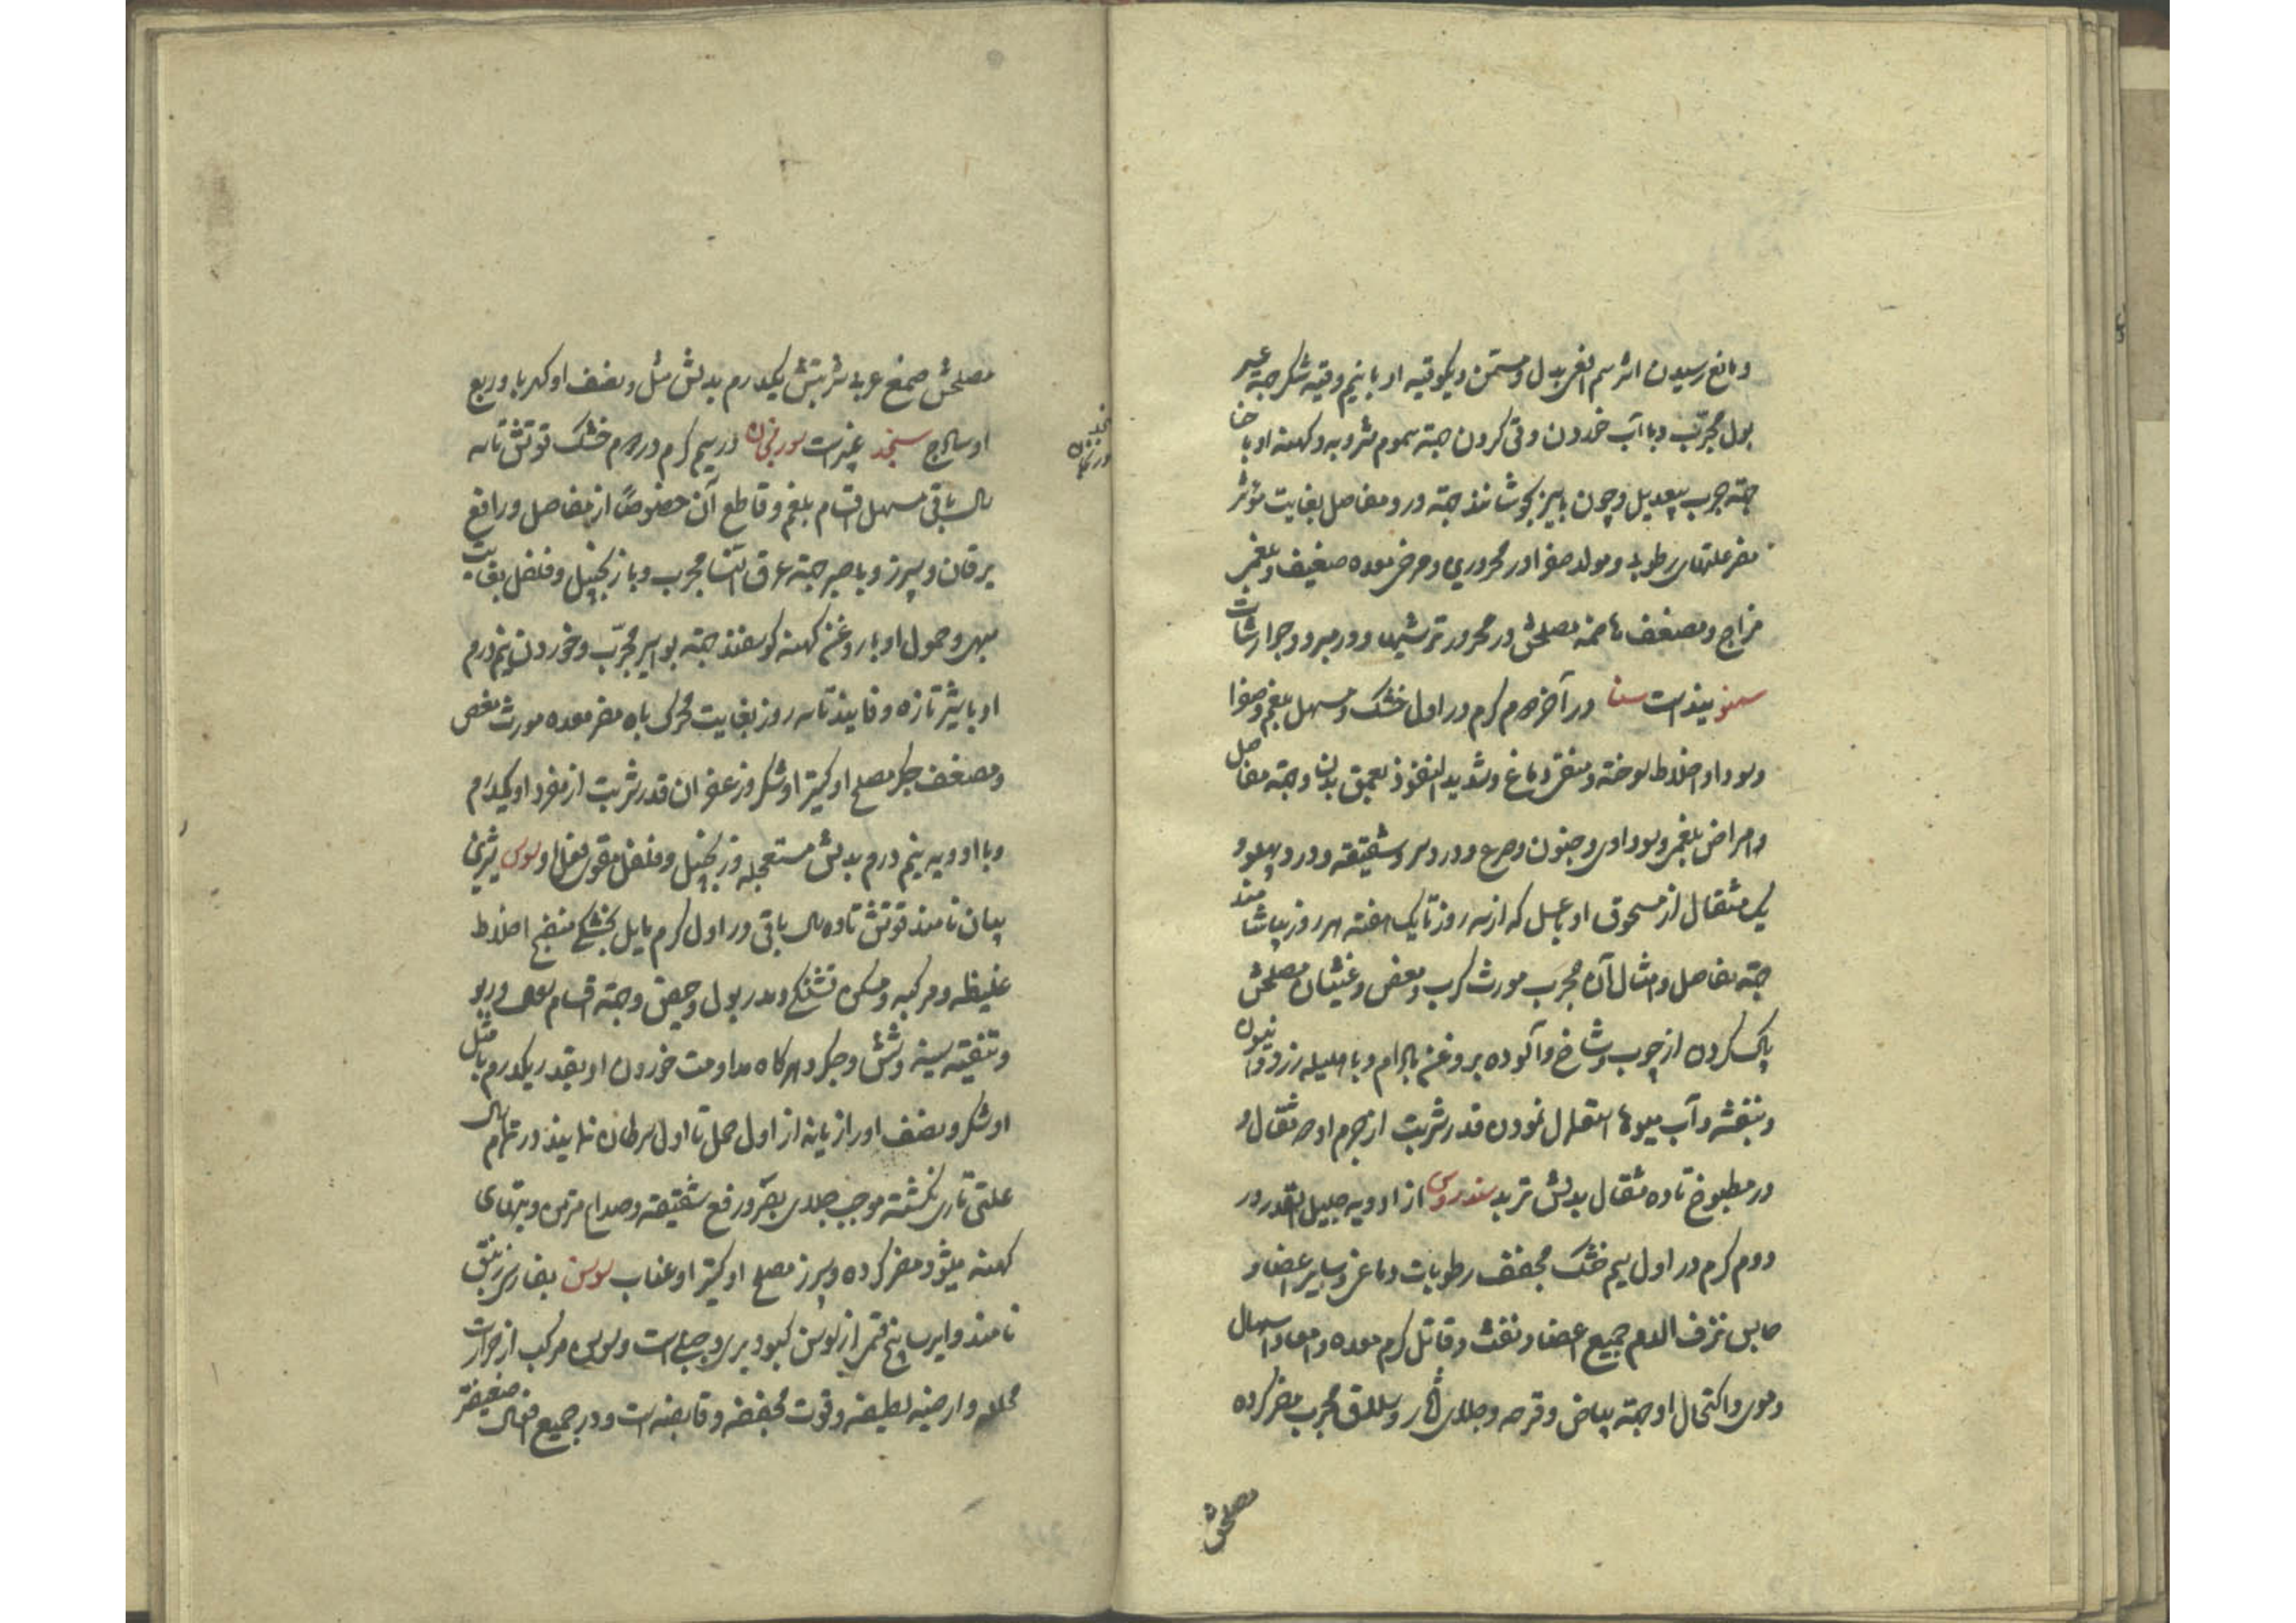 و مانع رسیدن اثر سم افعی بدل و مسمن و یکوقیه او با نیم وقیه شکر جهة عسر
بول مجرّب و با آب خوردن و قی کردن جهة سموم مشروبه و کهنه او با حنا
جهة جرب بیعدیل و چون با سیر بجوشانند جهة درد مفاصل بغایت مؤثر
مضر علتهای رطوبی و مولد صفرا در محروری و مرخی معده ضعیف و بلغمی
مزاج و مضعف هاضمه مصلحش در محرور ترشیها و در مبرود جوارشات
سمنو است سنا در آخر دوم گرم در اول خشک و مسهل بلغم و صفرا
و سودا و اخلاط سوخته و منقی دماغ و شدید النفوذ بعمق بدن و جهة مفاصل
و امراض بلغمی و سوداوی و جنون و صرع و درد سر و شقیقه و درد پهلو و
یک مثقال از مسحوق او با عسل که از سه روز تا یک هفته هر روز بیاشامند
جهة مفاصل و امثال آن مجرب مورث کرب و مغص و غثیان مصلحش
پاک کردن از چوب و شاخ و آلوده بروغن بادام و با هلیله زرد و انیسون
و بنفشه و آب میوها استعمال نمودن قدر شربت از جرم او دو مثقال و
در مطبوخ تا ده مثقال بدلش تربد سندروس از ادویه جلیل القدر در
دوم گرم در اول سیم خشک مجفف رطوبات دماغی و سایر اعضا و
حابس نزف الدم جمیع اعضا و نفث و قاتل کرم معده و امعا و اسهال
دموی و اکتحال او جهة بیاض و قرحه و جلای آثار و سلاق مجرب مضر کرده
مصلحش
مصلحش صمغ عربی شربتش یکدرم بدلش مثل و نصف او کهربا و ربع
او سادج سنجد غبیراست سورنجان در سیم گرم در دوم خشک قوتش تا سه
سنجد
سورنجان
سال باقی مسهل اقسام بلغم و قاطع آن خصوصًا از مفاصل و رافع
یرقان و سپرز و با صبر جهة عرق النسا مجرب و با زنجبیل و فلفل بغایت
مبهی و حمول او با روغن کهنه گوسفند جهة بواسیر مجرّب و خوردن نیم درم
او با شیر تازه و فانیذ تا سه روز بغایت محرک باه مضر معده مورث مغص
و مضعف جگر مصلح او کتیرا و شکر و زعفران قدر شربت از مفرد او یکدرم
و با ادویه نیم درم بدلش مستعجله و زنجبیل و فلفل مقوی فعل او سوس شیرین
بیان نامند قوتش تا ده سال باقی در اول گرم مایل بخشکی منضج اخلاط
غلیظه و مرکبه و مسکن تشنگی و مدر بول و حیض و جهة اقسام سعال و ربو
و تنقیه سینه و شش و جگر و هرگاه مداومت خوردن او بقدر یکدرم با مثل
او شکر و نصف او رازیانه از اول حمل تا اول سرطان نمایند در تمام سال
علتی تاری نگشته موجب جلای بصر و رفع شقیقه و صداع مزمن و تبهای
کهنه میشود مضر کرده و سپرز مصلح او کتیرا و عناب سوسن بفارسی زنبق
نامند و ایرسا بیخ قسمی از سوسن کبود بری و جبلی است و سوسن مرکب از حرارت
محلله و ارضیه لطیفه و قوت مجففه و قابضه است و در جمیع افعال ضعیفتر